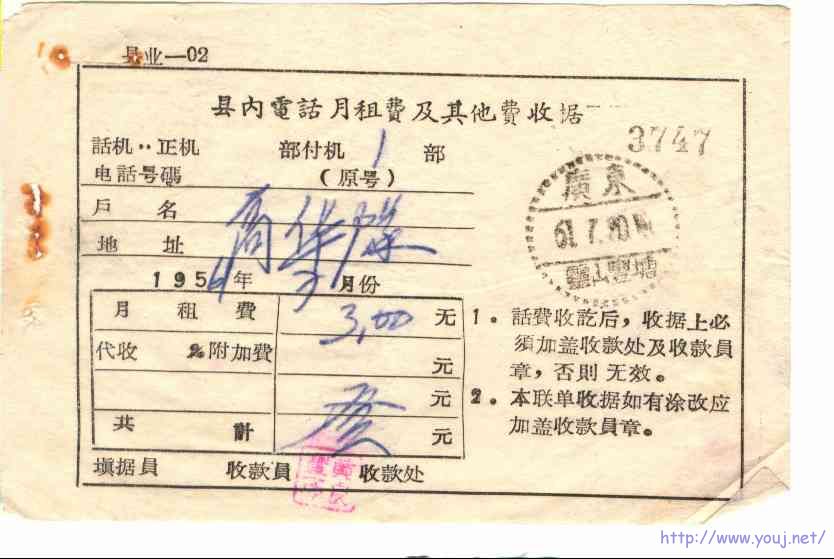 县业—02
县内電話月租費及其他費收据
3747
話机··正机 部付机 1 部
电話号碼 (原号)
廣東
61.7.20
戶名
地址
195 年 7 月份
月租費 3.00 元
代收 %附加費 元
元
共計 元
1。話費收訖后，收据上必
須加盖收款处及收款員
章，否則无效。
2。本联单收据如有涂改应
加盖收款員章。
填据員 收款員 收款处
http://www.youj.net/